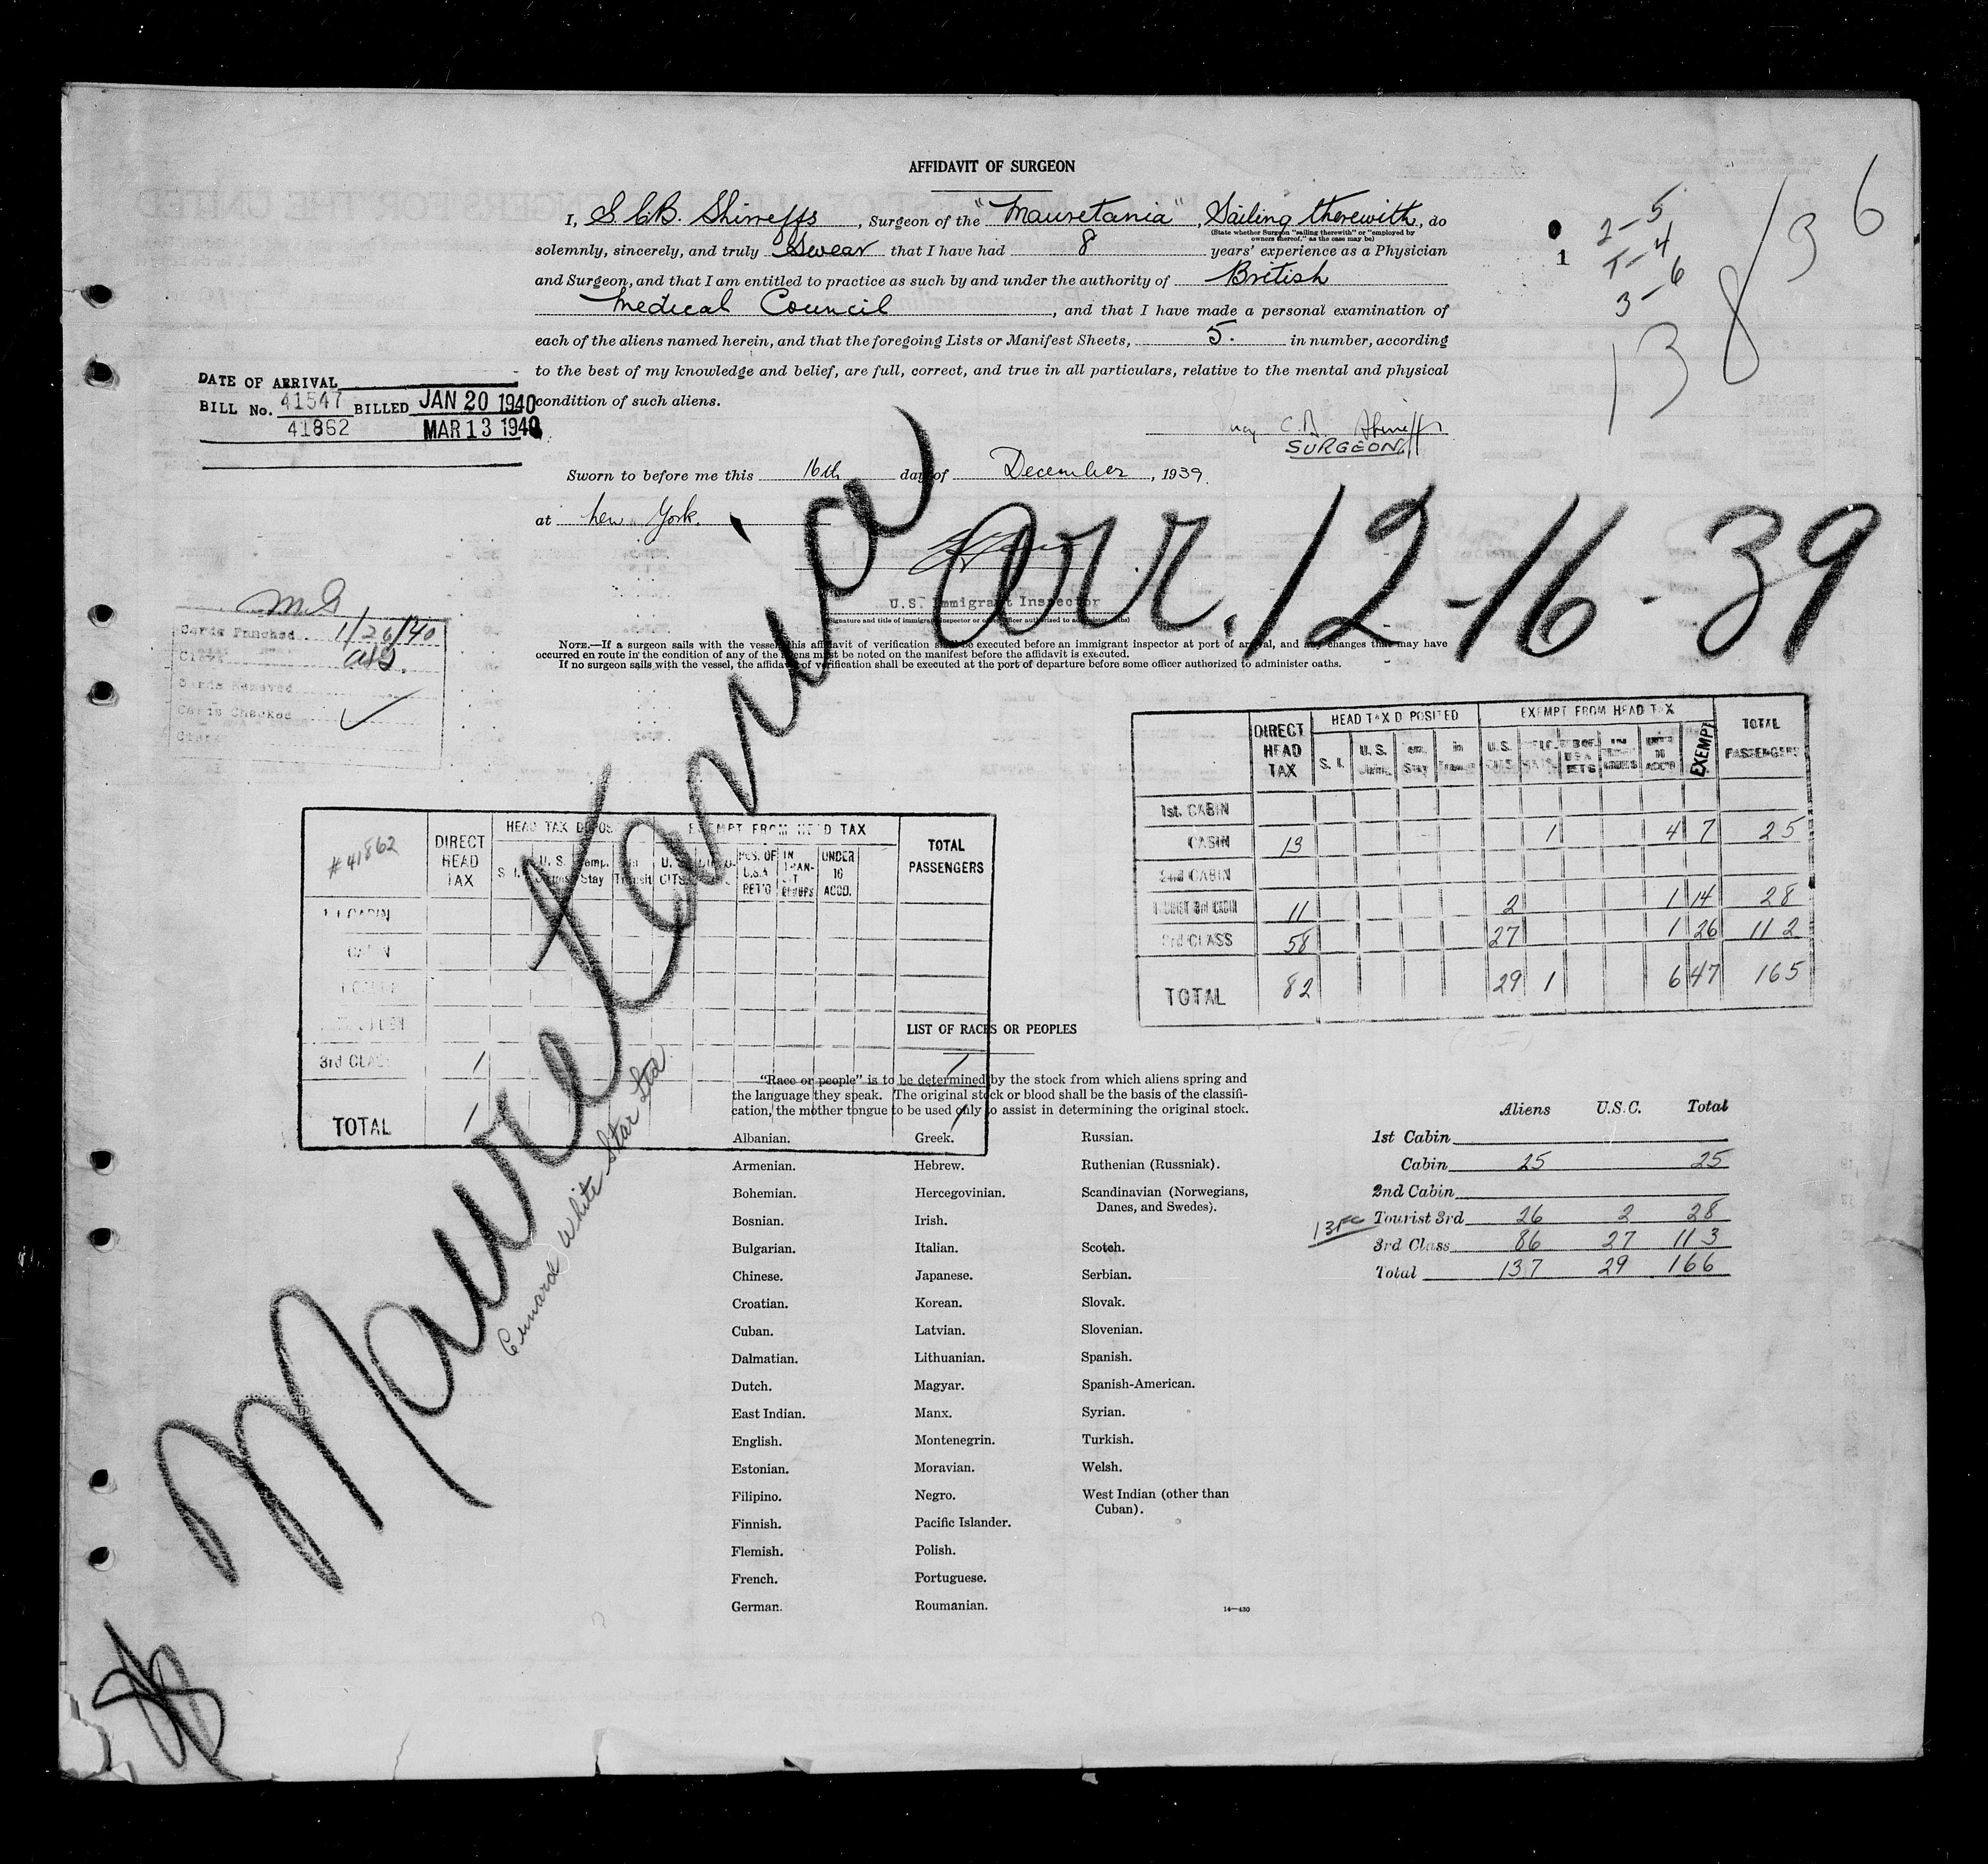 AFFIDAVIT OF SURGEON
I, S. C. B. Shirreffs, Surgeon of the "Mauretania", Sailing therewith, do
(State whether Surgeon "sailing therewith" or "employed by
owners thereof," as the case may be)
solemnly, sincerely, and truly Swear that I have had 8 years' experience as a Physician
and Surgeon, and that I am entitled to practice as such by and under the authority of British
Medical Council, and that I have made a personal examination of
each of the aliens named herein, and that the foregoing Lists or Manifest Sheets, 5. in number, according
to the best of my knowledge and belief, are full, correct, and true in all particulars, relative to the mental and physical
condition of such aliens.
2-5
1-4
3-6
1
13 8/36
DATE OF ARRIVAL
BILL No. 41547 BILLED JAN 20 1940
41862 MAR 13 1940
C. B. Shirreffs
SURGEON
Sworn to before me this 16th day of December, 1939.
at New York.
U.S. Immigrant Inspector
(Signature and title of immigrant inspector or other officer authorized to administer oaths)
NOTE.—If a surgeon sails with the vessel, this affidavit of verification shall be executed before an immigrant inspector at port of arrival, and any changes that may have
occurred en route in the condition of any of the aliens must be noted on the manifest before the affidavit is executed.
If no surgeon sails with the vessel, the affidavit of verification shall be executed at the port of departure before some officer authorized to administer oaths.
Mauretania arr. 12-16-39
Cunard White Star Ltd
Cards Punched 1/26/40
Clerk
Cards Removed
Cards Checked
Clerk
DIRECT HEAD TAX HEAD TAX DEPOSITED EXEMPT FROM HEAD TAX TOTAL PASSENGERS
S. I. U. S. Temp. Stay In Transit U.S. CITS. UNDER 16 ACC'D EXEMPT
1st. CABIN
CABIN 13 1 4 7 25
2nd CABIN
TOURIST 3rd CABIN 11 2 1 14 28
3rd CLASS 58 27 1 26 112
TOTAL 82 29 1 6 47 165
#41862 DIRECT HEAD TAX HEAD TAX DEPOS EXEMPT FROM HEAD TAX TOTAL PASSENGERS
S. I. U. S. Temp. Stay In Transit U. S. CITS. POS. OF U.S.A RET'G IN TRANSIT GROUPS UNDER 16 ACOD.
1st CABIN
CABIN
3rd CLASS 1 1
TOTAL 1 1
LIST OF RACES OR PEOPLES
"Race or people" is to be determined by the stock from which aliens spring and
the language they speak. The original stock or blood shall be the basis of the classifi-
cation, the mother tongue to be used only to assist in determining the original stock.
Albanian.
Armenian.
Bohemian.
Bosnian.
Bulgarian.
Chinese.
Croatian.
Cuban.
Dalmatian.
Dutch.
East Indian.
English.
Estonian.
Filipino.
Finnish.
Flemish.
French.
German.
Greek.
Hebrew.
Hercegovinian.
Irish.
Italian.
Japanese.
Korean.
Latvian.
Lithuanian.
Magyar.
Manx.
Montenegrin.
Moravian.
Negro.
Pacific Islander.
Polish.
Portuguese.
Roumanian.
Russian.
Ruthenian (Russniak).
Scandinavian (Norwegians,
Danes, and Swedes).
Scotch.
Serbian.
Slovak.
Slovenian.
Spanish.
Spanish-American.
Syrian.
Turkish.
Welsh.
West Indian (other than
Cuban).
14—430
Aliens U.S.C. Total
1st Cabin
Cabin 25 25
2nd Cabin
Tourist 3rd 26 2 28
3rd Class 86 27 113
Total 137 29 166